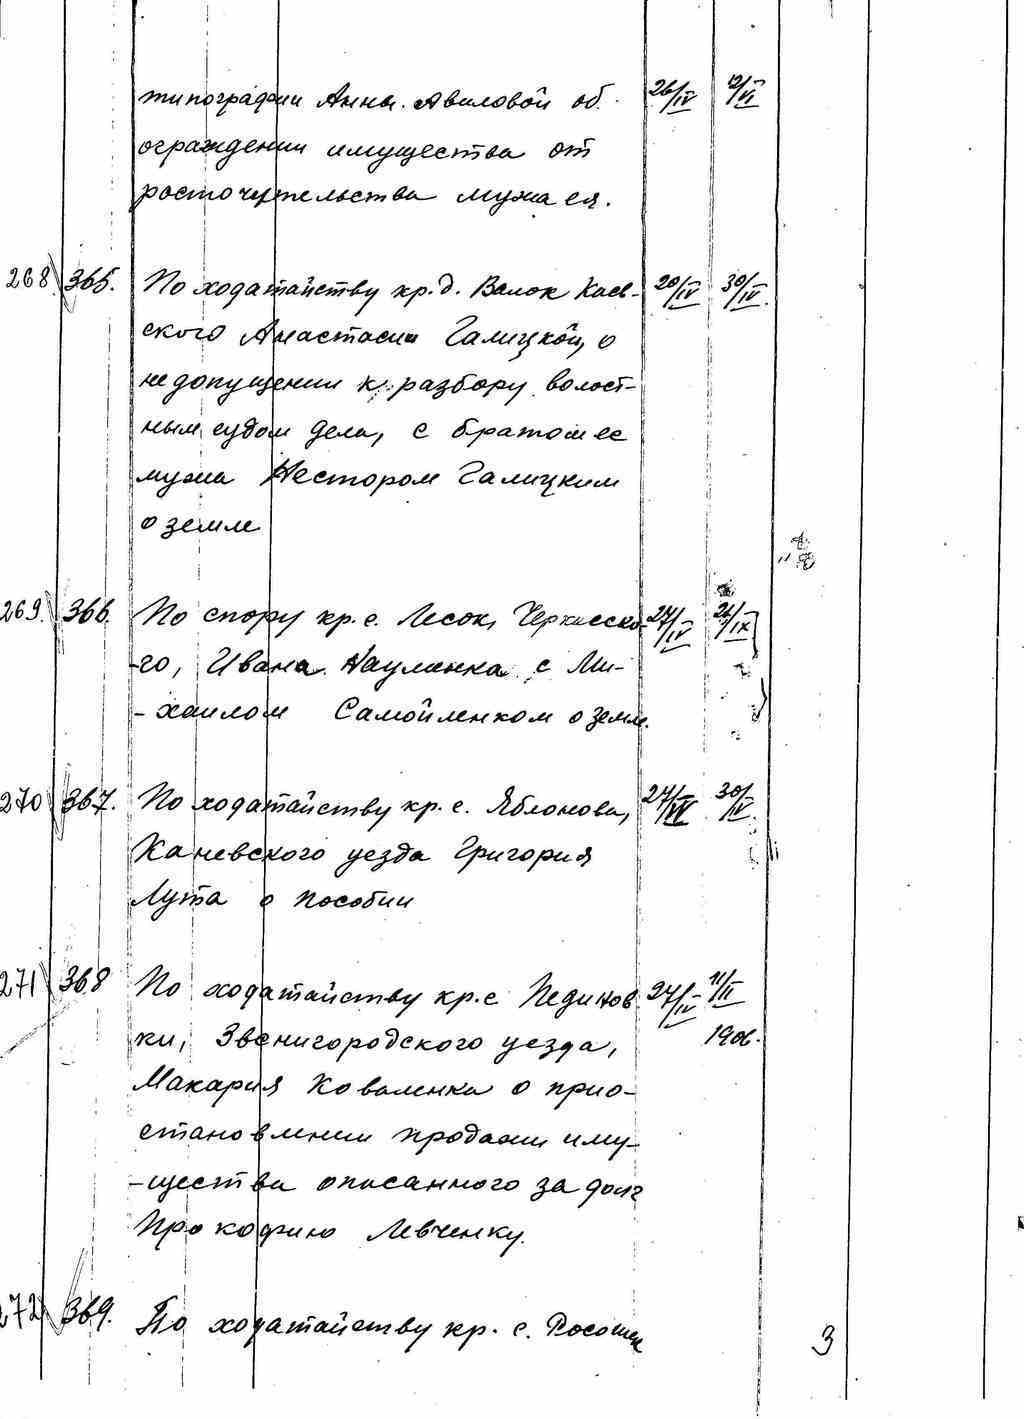 типографии Анны Авиловой об 26/IV 12/VI
ограждении имущества от
расточительства мужа ея.
268 365. По ходатайству кр. д. Валок Киев- 20/IV 30/IV.
ского Анастасии Галицкой, о
недопущении к разбору волост-
ным судом дела, с братом ее
мужа Нестором Галицким
о земле
269. 366. По спору кр. с. Лесок, Черкасско- 27/IV /IX
-го, Ивана Науменка с Ми-
-хаилом Самойленком о земле.
270 367. По ходатайству кр. с. Яблонова, 27/IV 30/IV.
Каневского уезда Григория
Лута о пособии
271 368 По ходатайству кр. с Пединов 27/IV 11/II
ки, Звенигородского уезда, 1906.
Макария Коваленка о прио-
становлении продажи иму-
-щества описанного за долг
Прокофию Левченку.
272 369. По ходатайству кр. с. Росошек
3